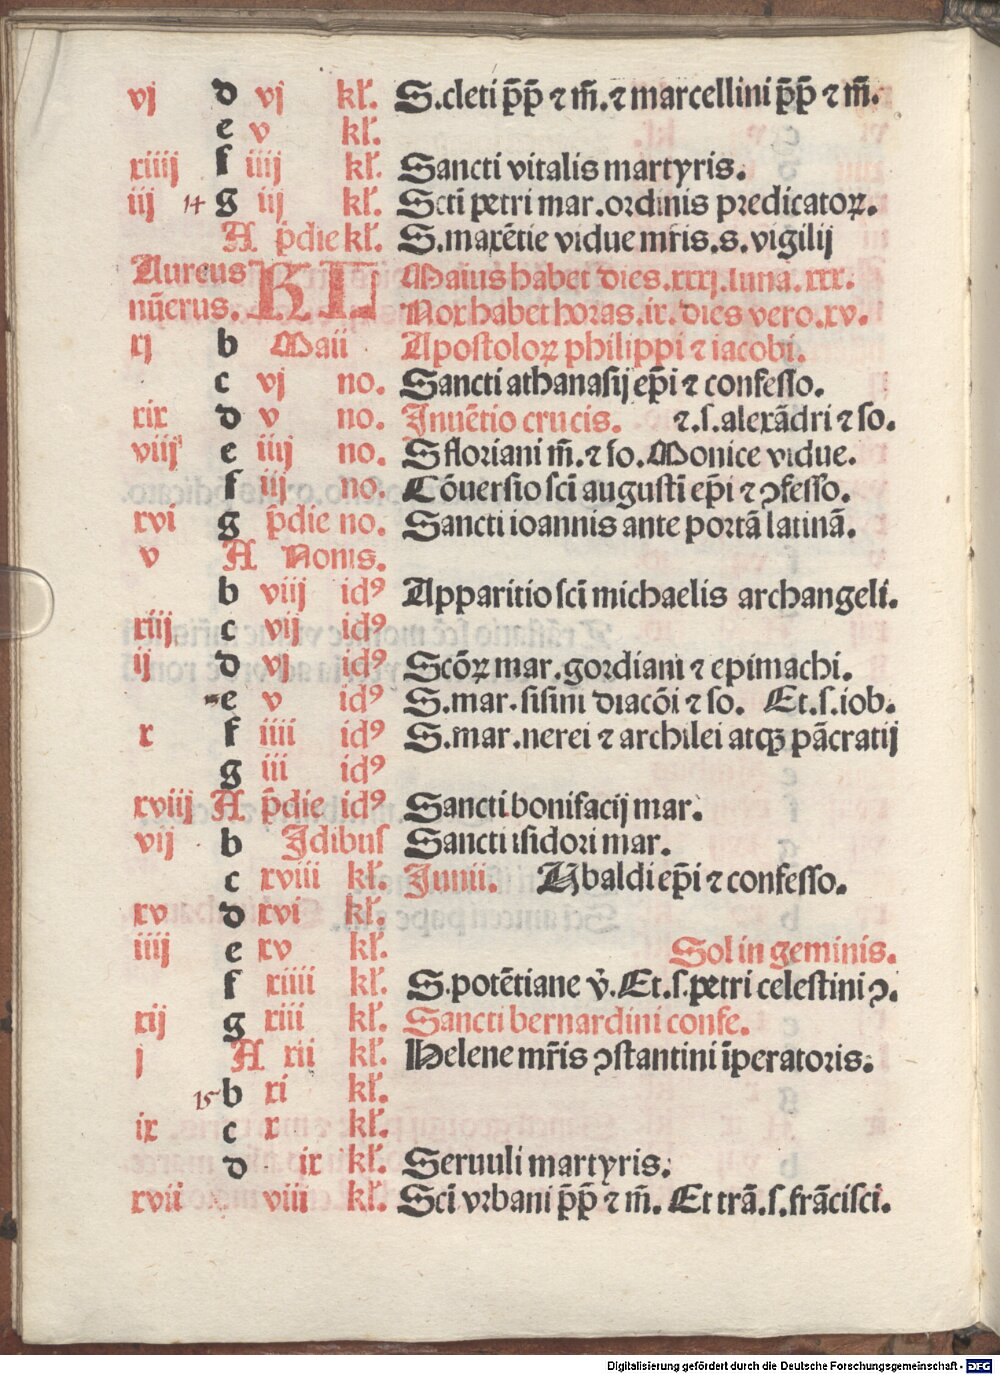 vj d vj kl̕. S.cleti p̄p̄ ⁊ m̄.⁊ marcellini p̄p̄ ⁊ m̄.
e v kl̕.
xiiij f iiij kl̕. Sancti vitalis martyris.
iij 14 g iij kl̕. Scti petri mar.ordinis predicatoꝝ.
A p̄die kl̕. S.maxētie vidue mr̄is.s.vigilij
Aureus KL Maius habet dies.xxxj.luna.xxx.
nūerus. Nox habet horas.ix.dies vero.xv.
xj b Maii Apostoloꝝ philippi ⁊ iacobi.
c vj no. Sancti athanasij ep̄i ⁊ confesso.
xix d v no. Inuētio crucis. ⁊.s.alexādri ⁊ so.
viij e iiij no. S floriani m̄.⁊ so.Monice vidue.
f iij no. Cōuersio sci̅ augusti̅ ep̄i ⁊ ꝯfesso.
xvi g p̄die no. Sancti ioannis ante portā latinā.
v A Nonis.
b viij idꝰ Apparitio sci̅ michaelis archangeli.
xiij c vij idꝰ
ij d vj idꝰ Scōꝝ mar.gordiani ⁊ epimachi.
e v idꝰ S.mar.sisini diacōi ⁊ so. Et.s.iob.
x f iiii idꝰ S.mar.nerei ⁊ archilei atqꝫ pācratij
g iii idꝰ
xviij A p̄die idꝰ Sancti bonifacij mar.
vij b Idibus Sancti isidori mar.
c xviii kl̕. Junii. Vbaldi ep̄i ⁊ confesso.
xv d xvi kl̕.
iiij e xv kl̕. Sol in geminis.
f xiiii kl̕. S.potētiane v̄.Et.s.petri celestini ꝯ.
xij g xiii kl̕. Sancti bernardini confe.
j A xii kl̕. Helene mr̄is ꝯstantini i̅peratoris.
15 b xi kl̕.
ix c x kl̕.
d ix kl̕. Seruuli martyris.
xvii viii kl̕. Sci̅ vrbani p̄p̄ ⁊ m̄. Et trā.s.frācisci.
Digitalisierung gefördert durch die Deutsche Forschungsgemeinschaft - DFG